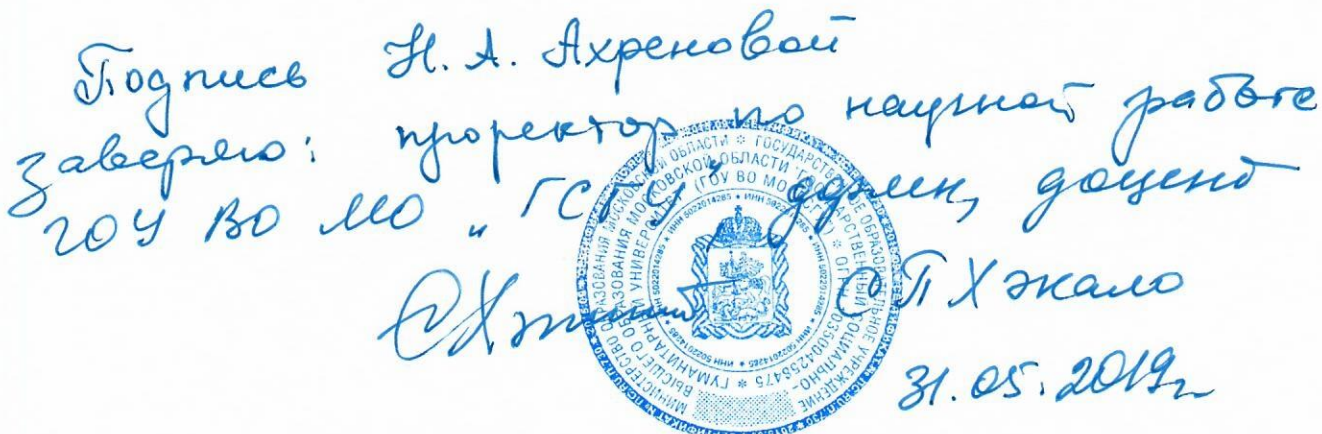 Подпись Н. А. Ахреновой
заверяю: проректор по научной работе
ГОУ ВО МО „ГСГУ" доцент
С П Хэкало
31.05.2019г
МИНИСТЕРСТВО ОБРАЗОВАНИЯ МОСКОВСКОЙ ОБЛАСТИ * ГОСУДАРСТВЕННОЕ ОБРАЗОВАТЕЛЬНОЕ УЧРЕЖДЕНИЕ
ВЫСШЕГО ОБРАЗОВАНИЯ МОСКОВСКОЙ ОБЛАСТИ "ГОСУДАРСТВЕННЫЙ СОЦИАЛЬНО-
ГУМАНИТАРНЫЙ УНИВЕРСИТЕТ" (ГОУ ВО МО ГСГУ) * ОГРН
* ИНН 5022014285 * ИНН 5022014285 * ИНН 5022014285